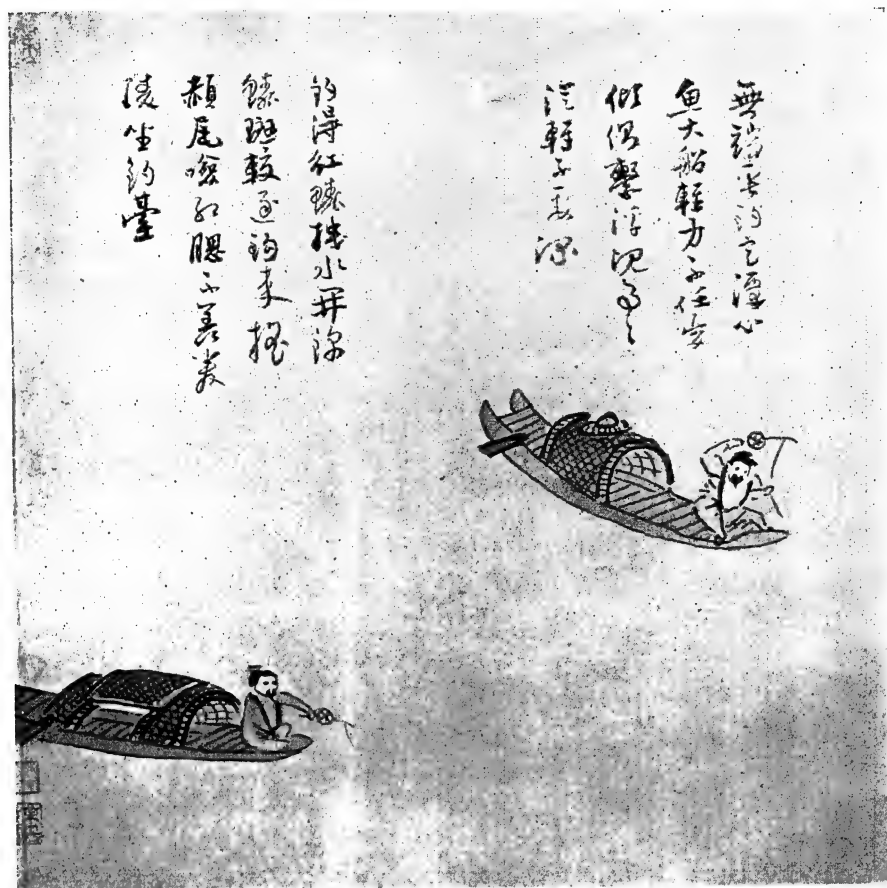 無端垂釣空潭心
魚大船輕力不任憂
傾倒繫浮沉事〻
從輕不要深
釣得紅鱗拽水開錦
鱗斑駁逐鉤來搖
赬尾噞紅腮不羨嚴
陵坐釣臺